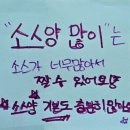 "소스양 많이"는
소스가 너무많아서
짤 수 있어요!
☆소스양 기본도 충분히 많아요☆